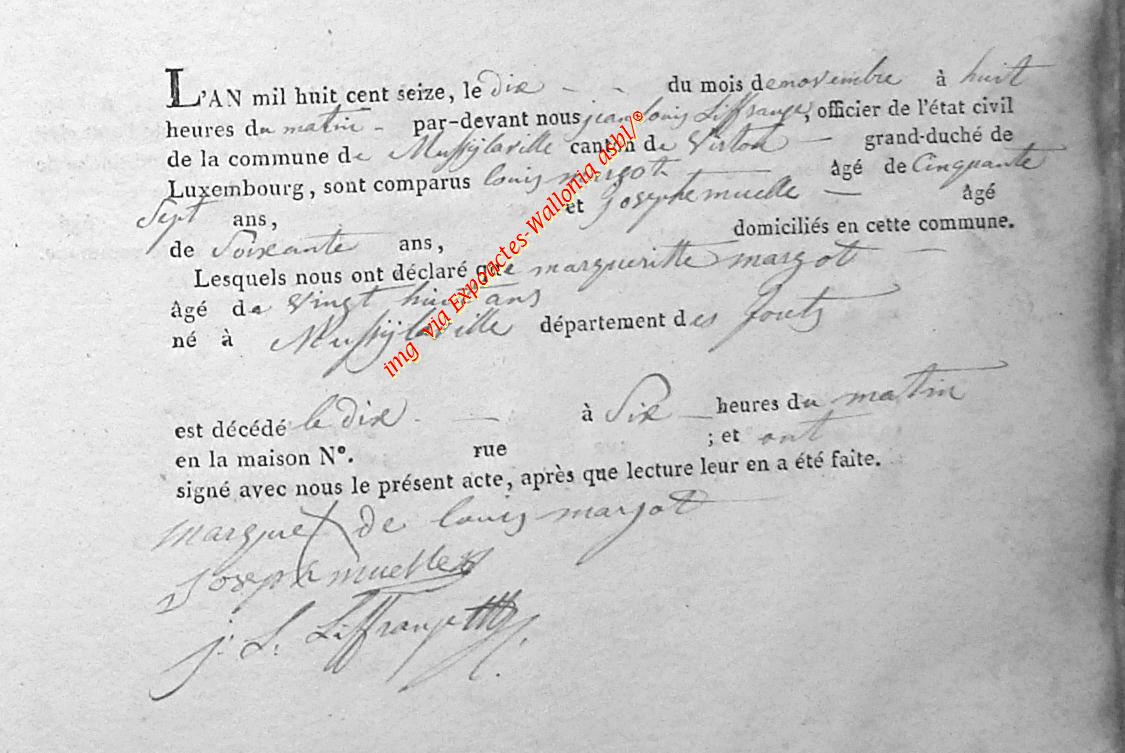 L'AN mil huit cent seize, le dix - - du mois de novembre à huit
heures du matin - par-devant nous jean louis Liffrange, officier de l'état civil
de la commune de Mussylaville canton de Virton — grand-duché de
Luxembourg, sont comparus louis margot âgé de Cinquante
Sept ans, et Josephe muelle — âgé
de Soixante ans, domiciliés en cette commune.
Lesquels nous ont déclaré que margueritte margot
âgé de vingt huit ans
né à Mussylaville département des forets
est décédé le dix - — à Six — heures du matin
en la maison N°. rue ; et ont
signé avec nous le présent acte, après que lecture leur en a été faite.
marque X de louis margot
Joseph muelle
j. L. Liffrange
img via Expoactes-Wallonia asbl/®